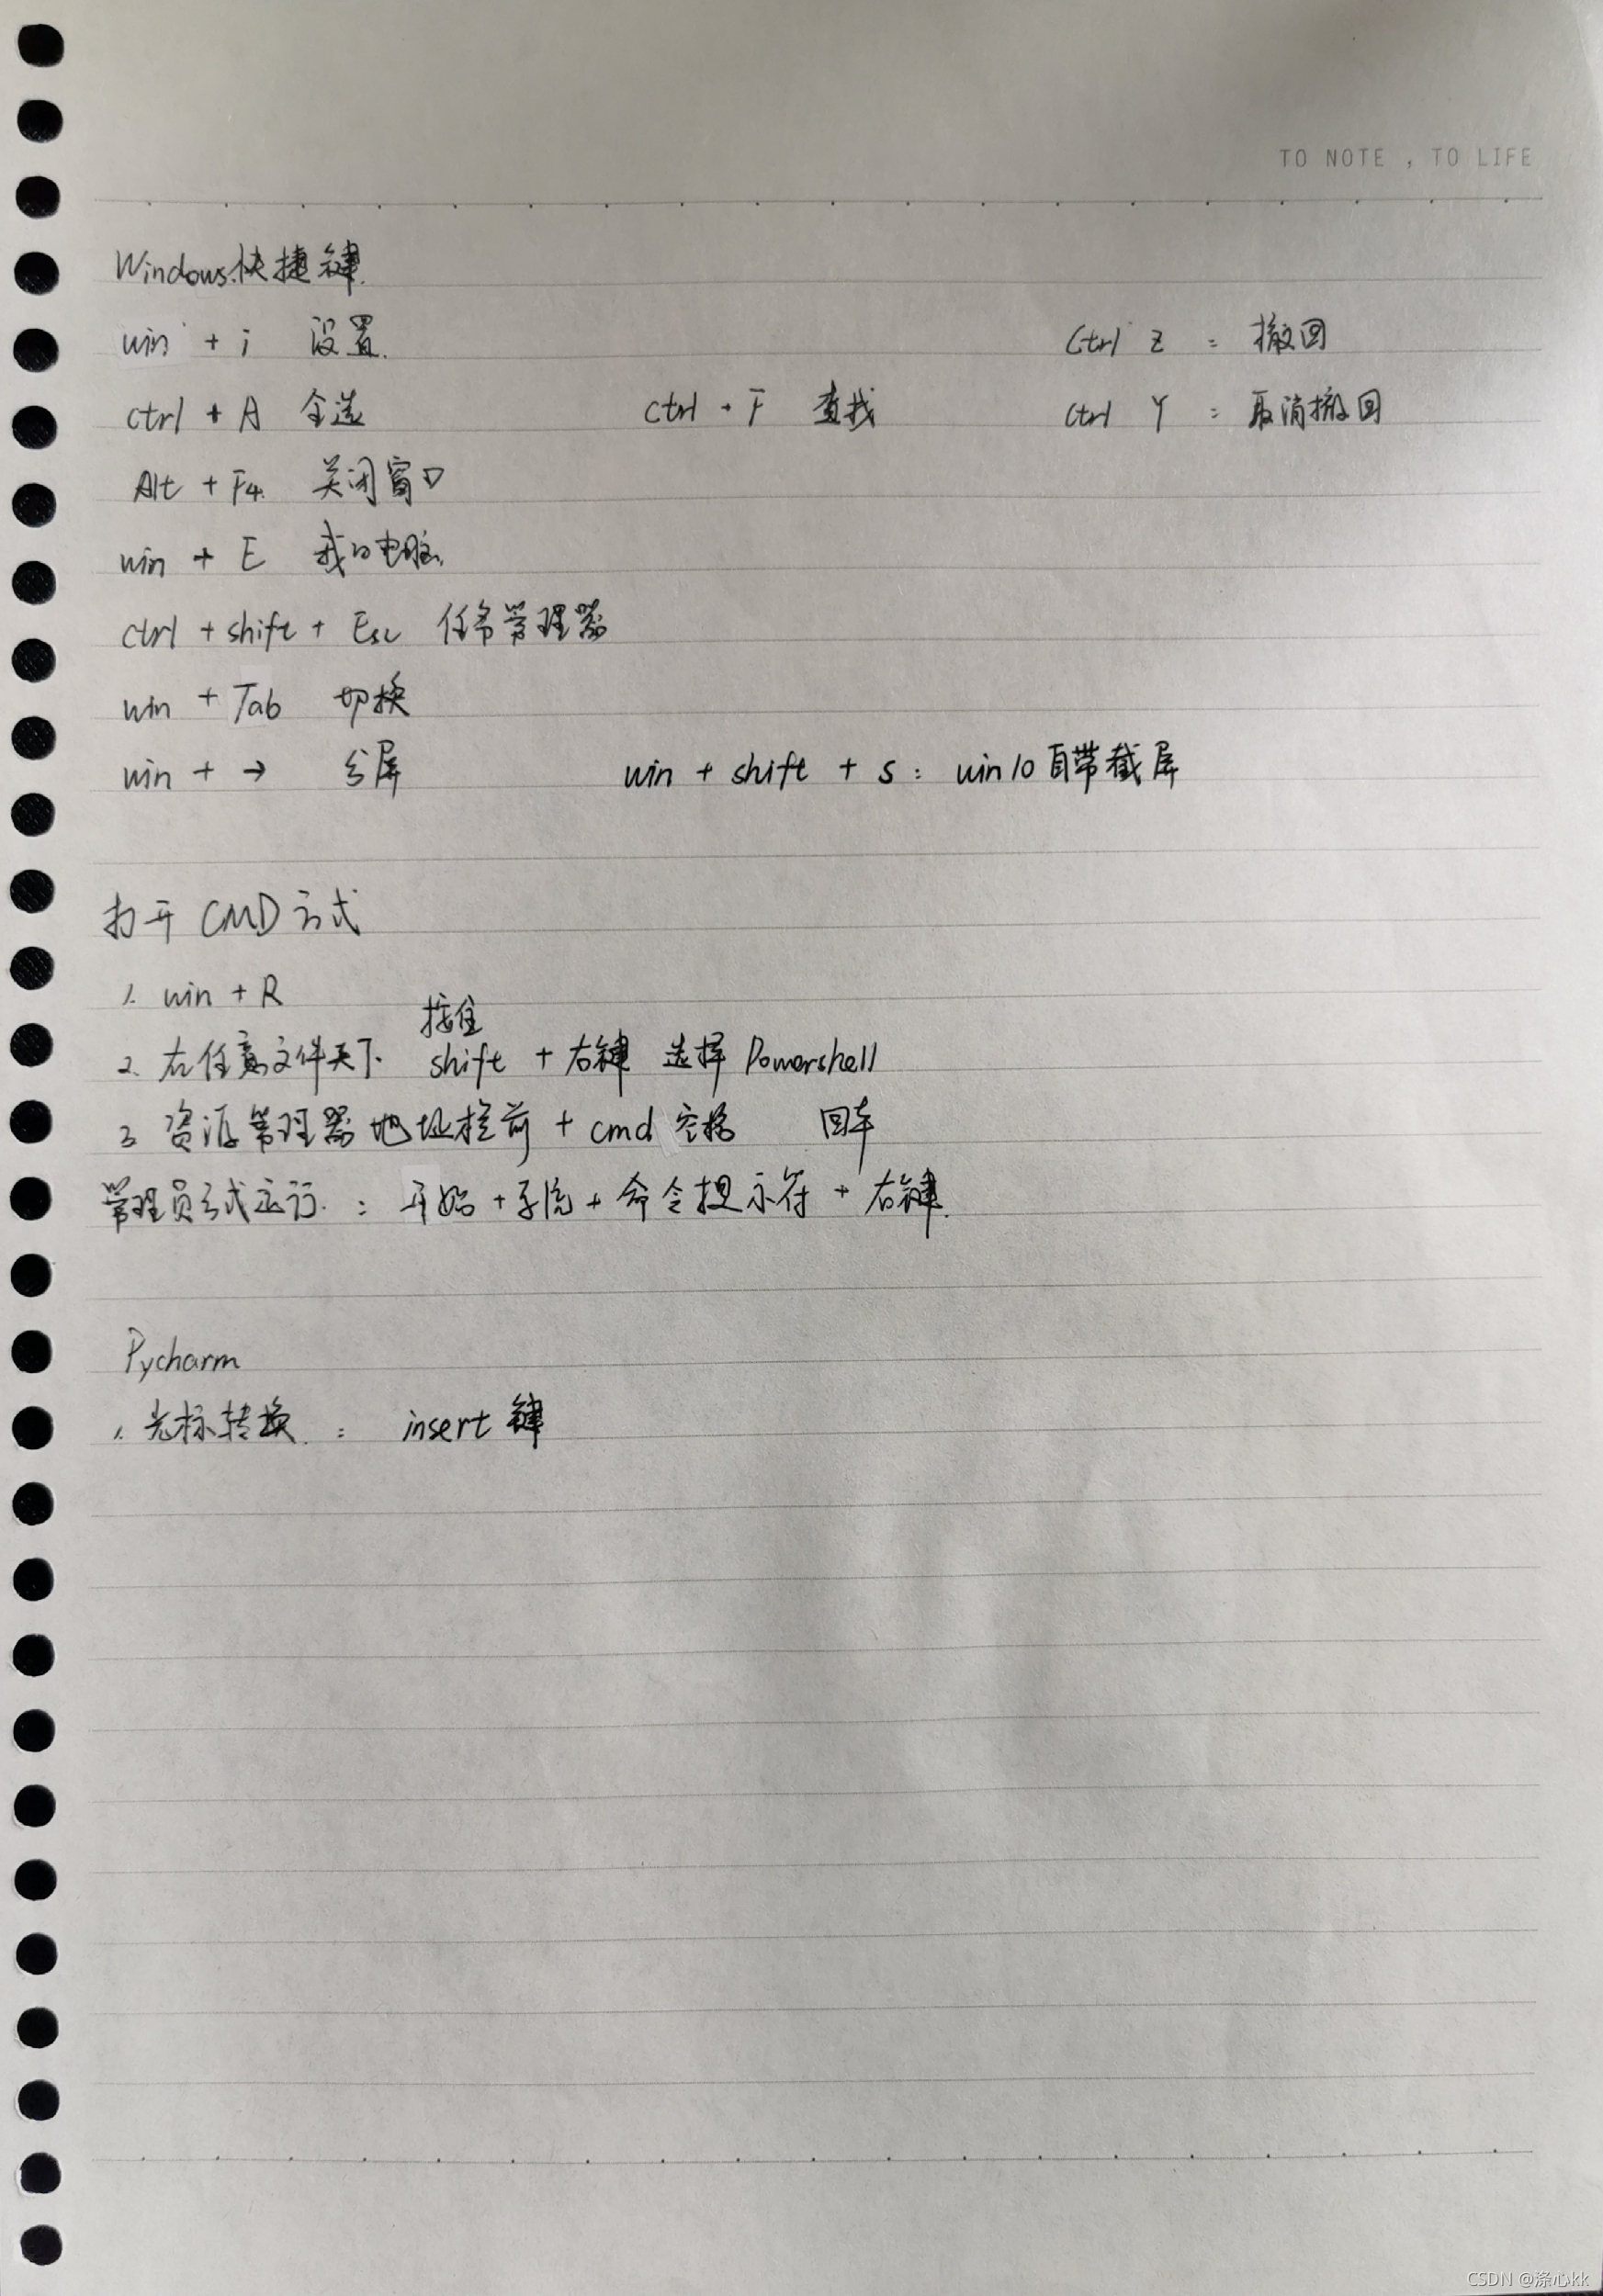 TO NOTE , TO LIFE
Windows快捷键
win + i 设置 Ctrl Z : 撤回
ctrl + A 全选 ctrl + F 查找 Ctrl Y : 取消撤回
Alt + F4 关闭窗口
win + E 我的电脑
ctrl + shift + Esc 任务管理器
win + Tab 切换
win + → 分屏 win + shift + s : win10自带截屏
打开 CMD 方式
1. win + R
按住
2. 在任意文件夹下 shift + 右键 选择 Powershell
3. 资源管理器地址栏前 + cmd 空格 回车
管理员方式运行 : 开始 + 系统 + 命令提示符 + 右键
Pycharm
1. 光标转换 : insert 键
CSDN @涤心kk